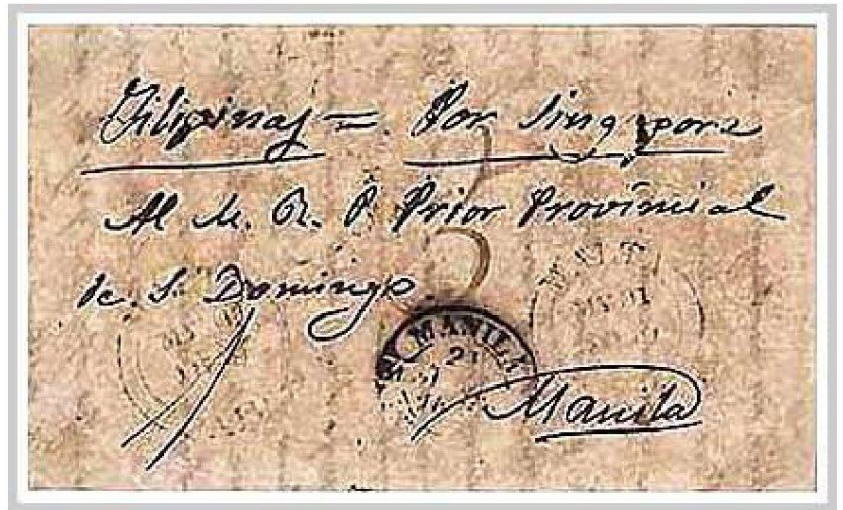 Filipinas = Por Singapore
Al M. R. P. Prior Provincial
de S. Domingo
3
MANILA
21
Manila